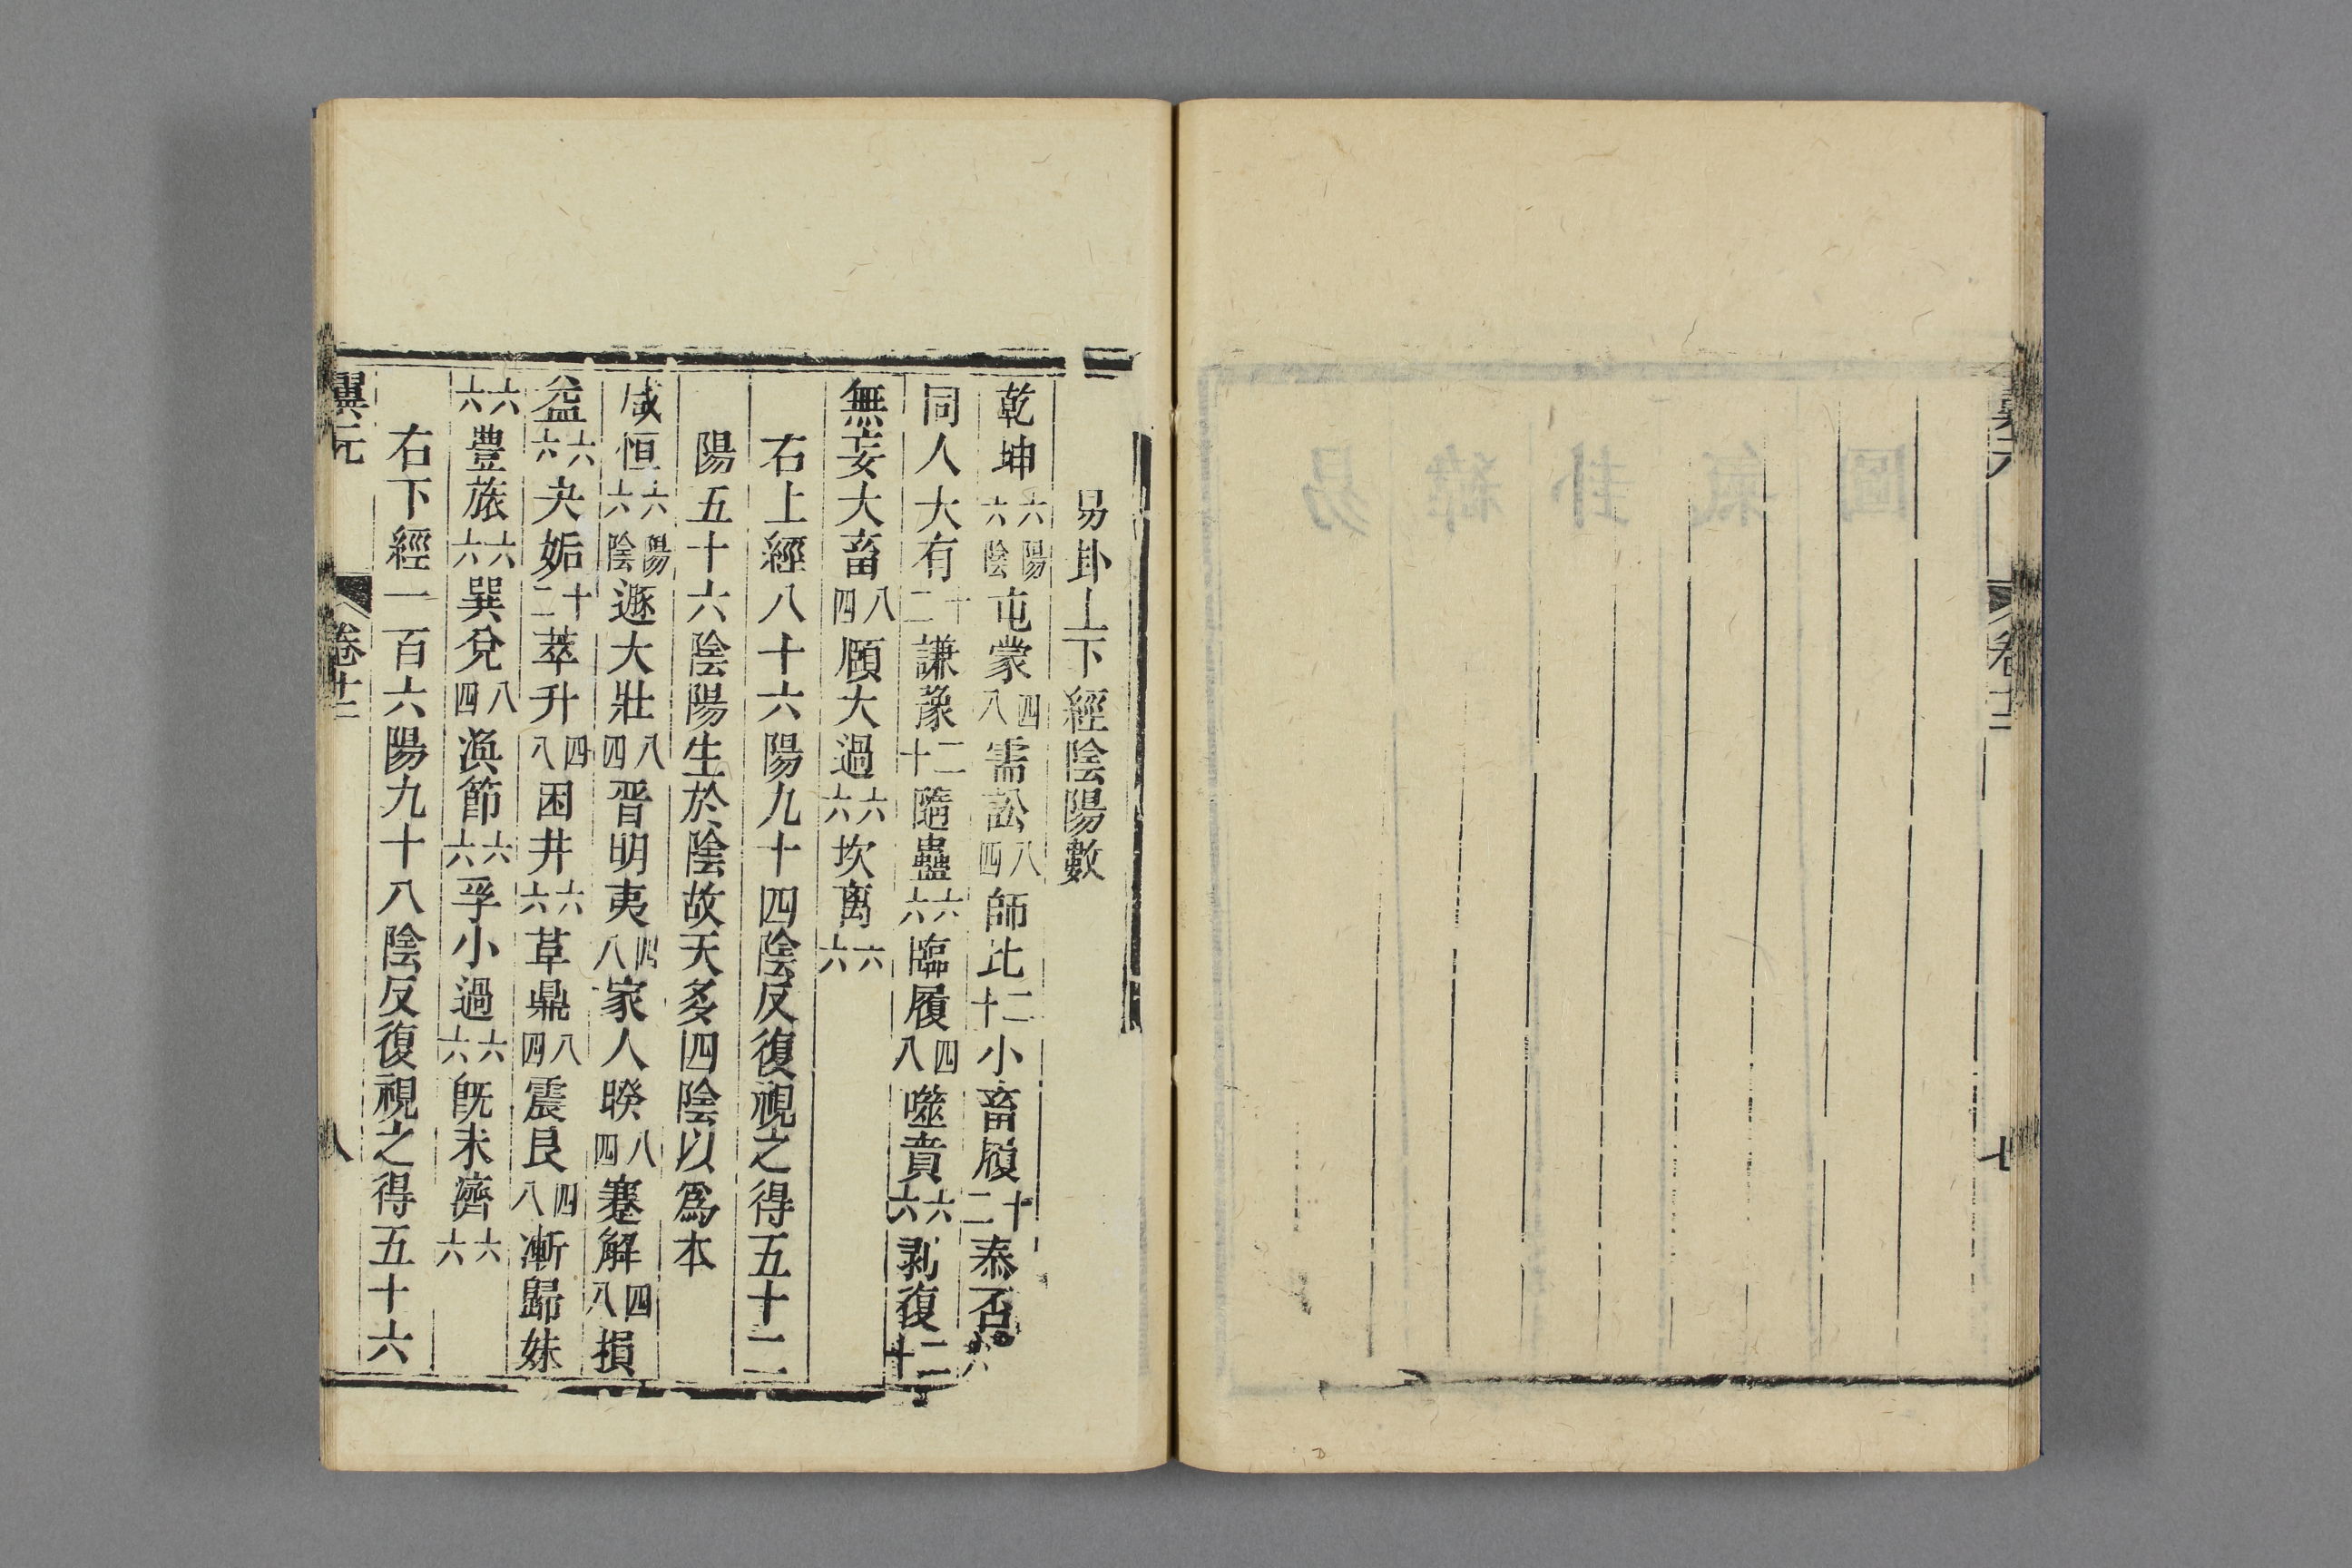 易卦上下經陰陽數
乾坤六陽六陰屯蒙四八需訟八四師比二十小畜履十二泰否六
同人大有十二謙豫二十隨蠱六六臨履四八噬賁六六剥復二十
無妄大畜八四頤大過六六坎离六六
右上經八十六陽九十四陰反復視之得五十二
陽五十六陰陽生於陰故天多四陰以爲本
咸恒六陽六陰遯大壯八四晋明夷四八家人睽八四蹇解四八損
益六六夬姤十二萃升四八困井六六革鼎八四震艮四八漸歸妹
六六豊旅六六巽兌八四渙節六六孚小過六六旣未濟六六
右下經一百六陽九十八陰反復視之得五十六
翼元
卷十二
八
卷十二
七